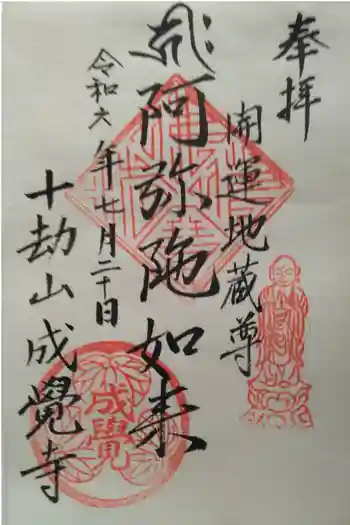 奉拝
開運地蔵尊
阿弥陀如来
令和六年七月二十日
十劫山成覺寺
成覺